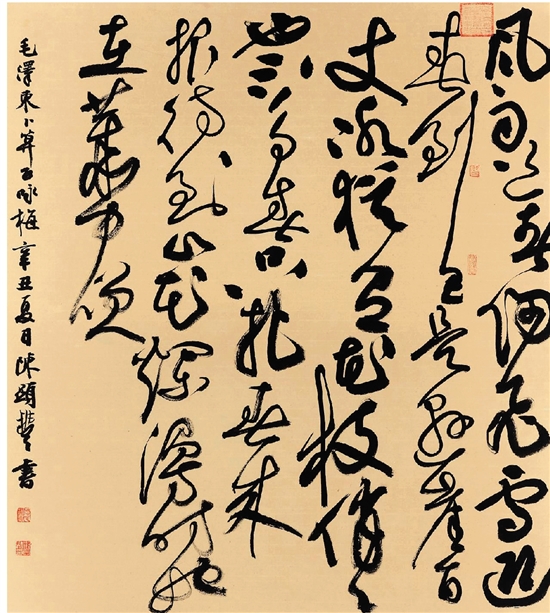 風雨送春歸飛雪迎
春到已是懸崖百
丈冰猶有花枝俏〻
也不爭春只把春來
報待到山花爛漫時她
在叢中笑
毛澤東卜算子咏梅辛丑夏日陳書